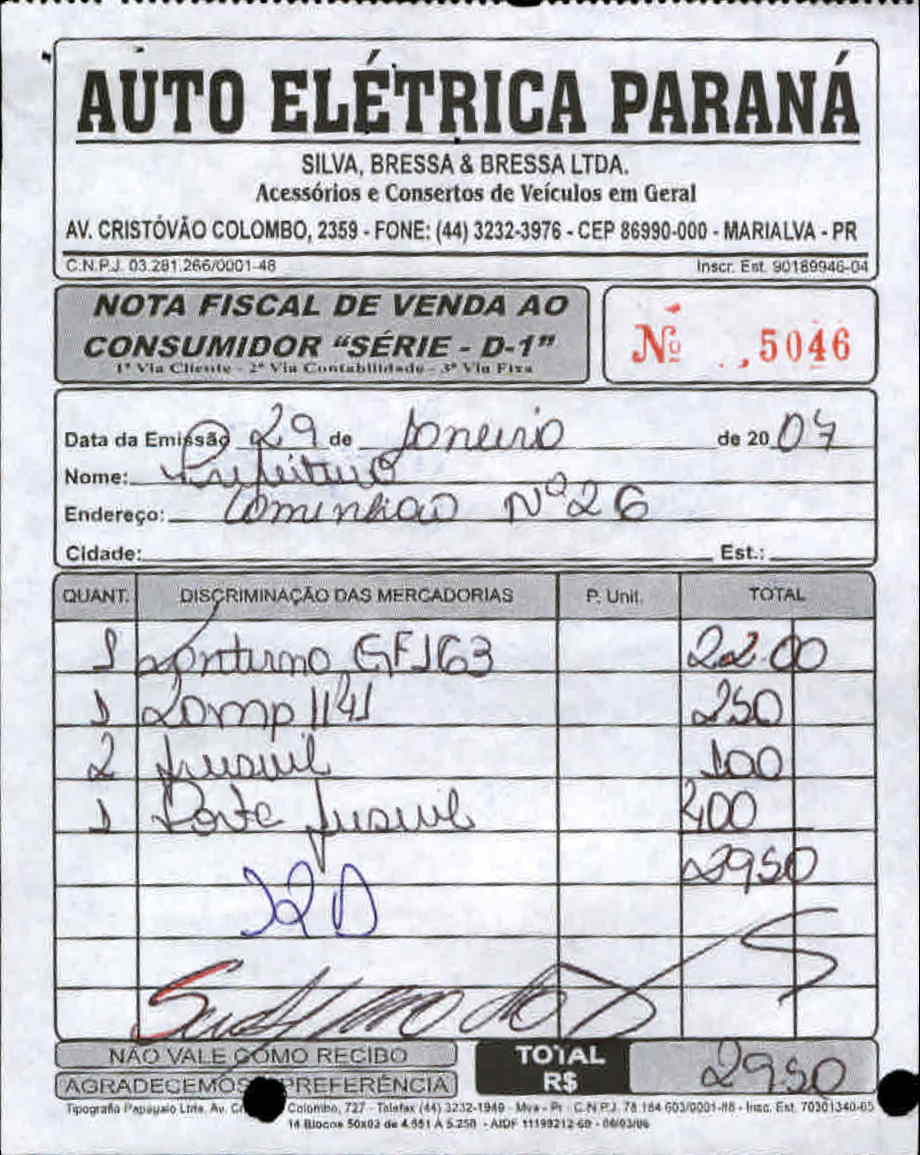 AUTO ELÉTRICA PARANÁ
SILVA, BRESSA & BRESSA LTDA.
Acessórios e Consertos de Veículos em Geral
AV. CRISTÓVÃO COLOMBO, 2359 - FONE: (44) 3232-3976 - CEP 86990-000 - MARIALVA - PR
C.N.P.J. 03.281.266/0001-48 Inscr. Est. 90189946-04
NOTA FISCAL DE VENDA AO
CONSUMIDOR "SÉRIE - D-1"
1ª Via Cliente - 2ª Via Contabilidade - 3ª Via Fixa
Nº 5046
Data da Emissão 29 de Janeiro de 20 07
Nome: Prefeitura
Endereço: Caminhão Nº 26
Cidade: Est.:
QUANT. DISCRIMINAÇÃO DAS MERCADORIAS P. Unit. TOTAL
1 Lanterna GF163 22.00
1 Lamp 1141 250
2 fusivil 100
1 Porta fusivil 400
2950
NÃO VALE COMO RECIBO
AGRADECEMOS PREFERÊNCIA
TOTAL R$ 29.50
Tipografia Papagaio Ltda. Av. Colombo, 727 - Telefax (44) 3232-1949 - Mva - Pr - C.N.P.J. 78.184.603/0001-88 - Insc. Est. 70301340-65
14 Blocos 50x03 de 4.551 A 5.250 - AIDF 11199212-60 - 06/03/06